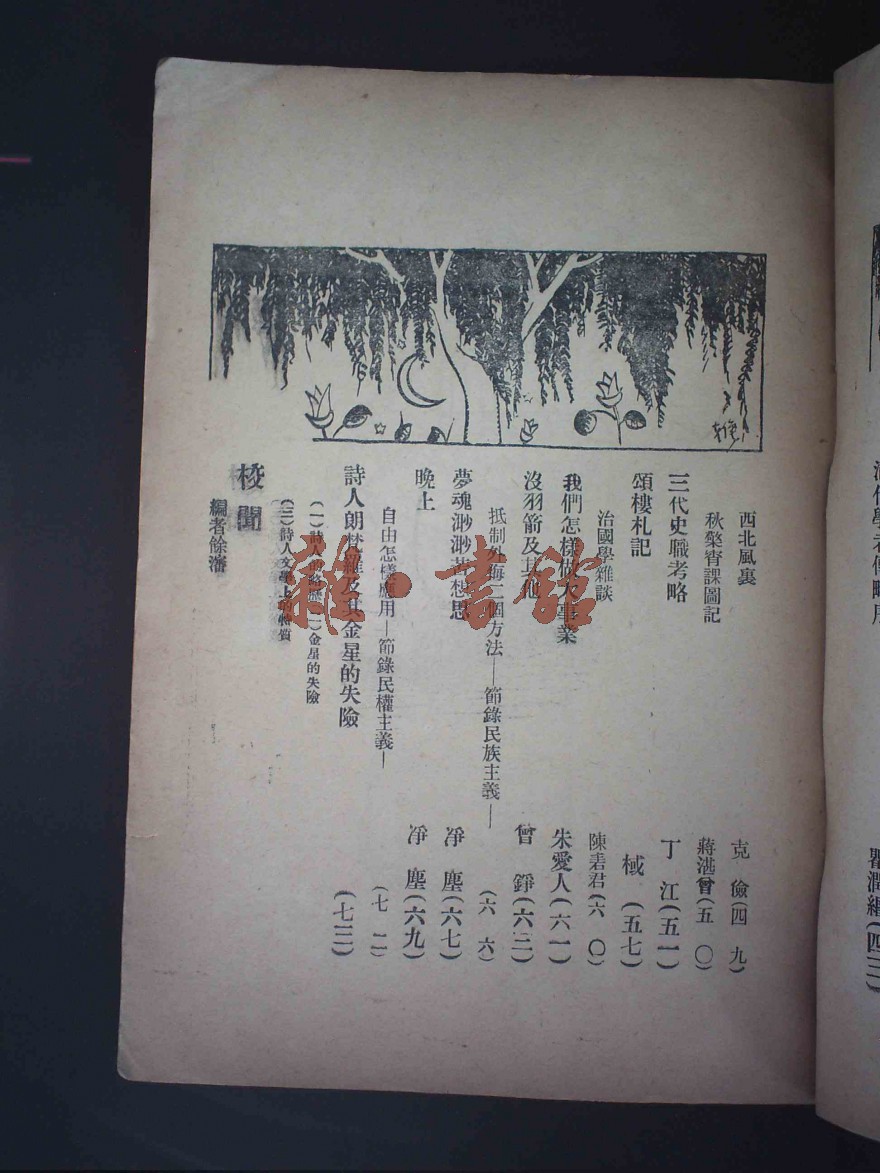 西北風裏　克儉(四九)
秋檠宵課圖記　蔣湛曾(五〇)
三代史職考略　丁江(五一)
頌樓札記　棫(五七)
治國學雜談　陳君(六〇)
我們怎樣做大事業　朱愛人(六一)
沒羽箭及其他　曾錚(六三)
抵制外侮二個方法—節錄民族主義—　(六六)
夢魂渺渺苦想思　凈塵(六七)
晚上　凈塵(六九)
自由怎樣應用—節錄民權主義—　(七二)
詩人朗梵羅及其金星的失險　(七三)
(一)詩人的略歷(二)金星的失險
(三)詩人文學上的特質
校聞
編者徐瀋
雜·書館